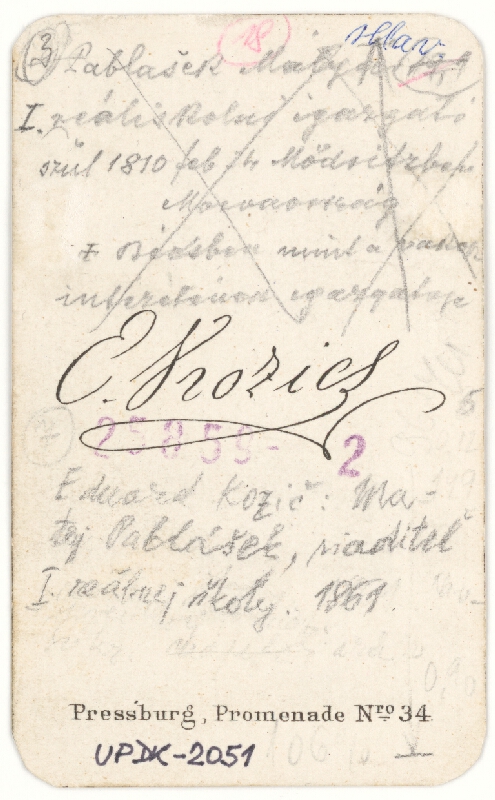 3
18
Pablášek Mátyás
I. reáliskolai igazgató
szül 1810 feb 14 Mödritzben
Morvaország
+ Bécsben mint a vakok
intézetének igazgatója
E. Kozics
25859-2
Eduard Kozič: Ma-
tej Pablášek, riaditeľ
I. reálnej školy. 1861
Pressburg, Promenade Nro 34
UPDK-2051
V